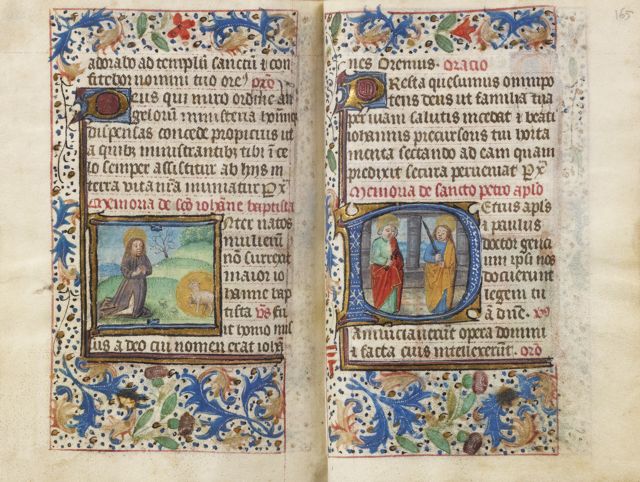 adorabo ad templū sanctū ⁊ con
fitebor nomini tuo ore' oro
Deus qui miro ordine an
gelorum ministeria hoīnūq
dispensas concede propicius ut
a quibz ministrantibz tibi ī ce
lo semper assistitur ab hys in
terra vita nr̄a muniatur Pxm̄
Memoria de scō iohāne baptista
Inter natos
mulierū
nō surrexit
maior io
hanne bap
tista vs̄ fu
it homo mis
sus a deo cui nomen erat ioh
165
nes Oremus oracio
Presta quesumus omnipo
tens deus ut familia tua
per viam salutis incedat ⁊ beati
iohannis precursoris tui horta
menta sectando ad eam quam
predixit secura perueniat Pxm̄
Memoria de sancto petro aplō
Petrus apls
⁊ paulus
doctor genciū
ipsi nos
docuerunt
legem tu
ā dne. vs̄
Annunciauerunt opera domini
⁊ facta eius intellexerunt. oro